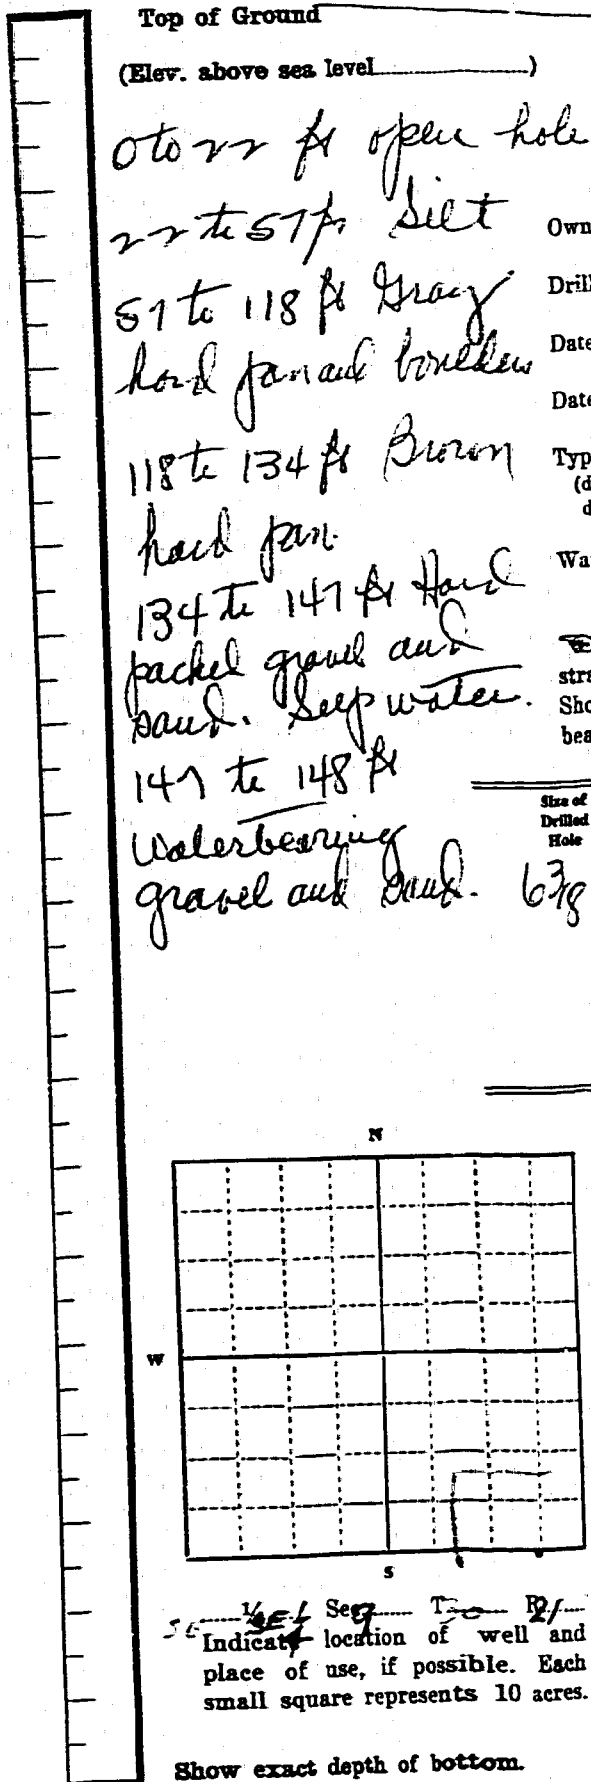 Top of Ground
(Elev. above sea level)
0 to 22 ft open hole
22 to 57 ft Silt
57 to 118 ft Gray
hard pan and boulders
118 to 134 ft Brown
hard pan.
134 to 147 ft Hard
packed gravel and
sand. Seep water.
147 to 148 ft
Waterbearing
gravel and sand.
Own
Drill
Date
Date
Typ
(d
d
Wa
stra
Sho
bea
Size of
Drilled
Hole
6 3/8
N
W
S
SE 1/4 SE 1/4 Sec 9 T 30 R 21
Indicate location of well and
place of use, if possible. Each
small square represents 10 acres.
Show exact depth of bottom.